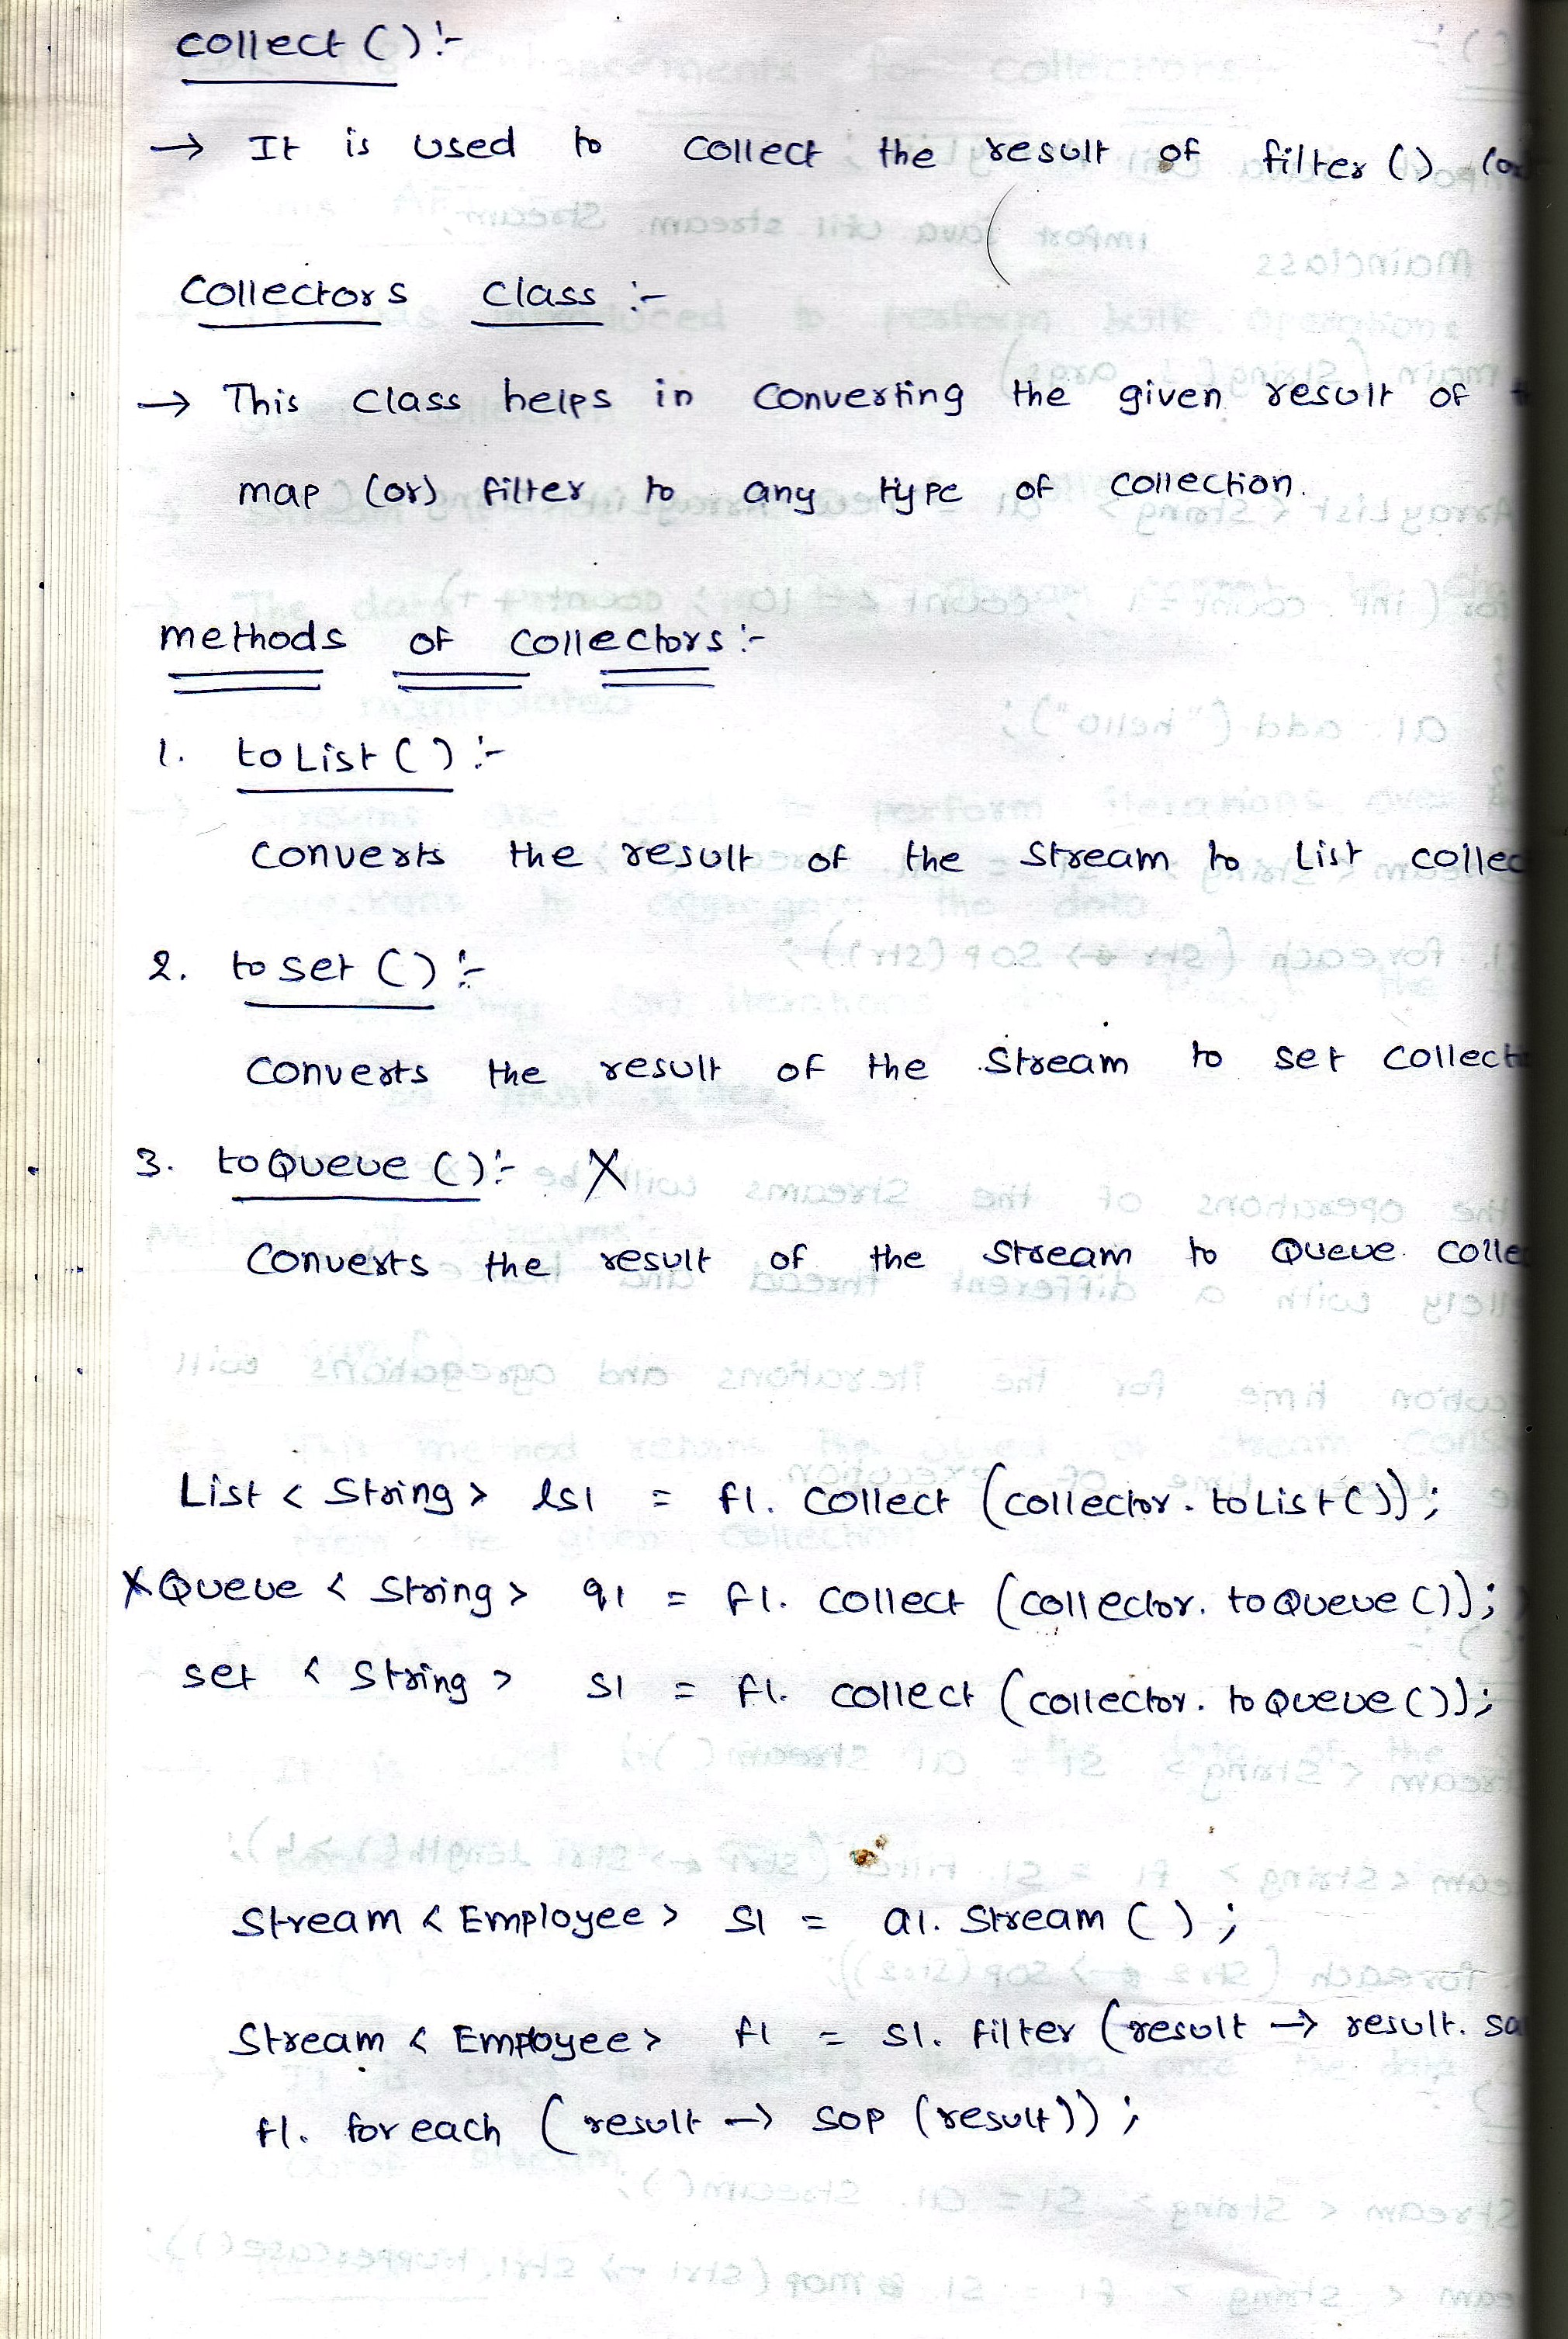 collect () :-
→ It is used to collect the result of filter () (or
Collectors class :-
→ This class helps in converting the given result of
map (or) filter to any type of collection.
methods of collectors :-
1. toList () :-
converts the result of the stream to List collec
2. to set () :-
converts the result of the stream to set collect
3. toQueue () :- X
converts the result of the stream to Queue colle
List < String > ls1 = f1. collect (collector . toList());
X Queue < String > q1 = f1. collect (collector. toQueue ());
set < String > s1 = f1. collect (collector. toQueue ());
Stream < Employee > s1 = a1. Stream ( ) ;
Stream < Employee > f1 = s1. filter (result → result. sa
f1. foreach ( result → sop (result)) ;